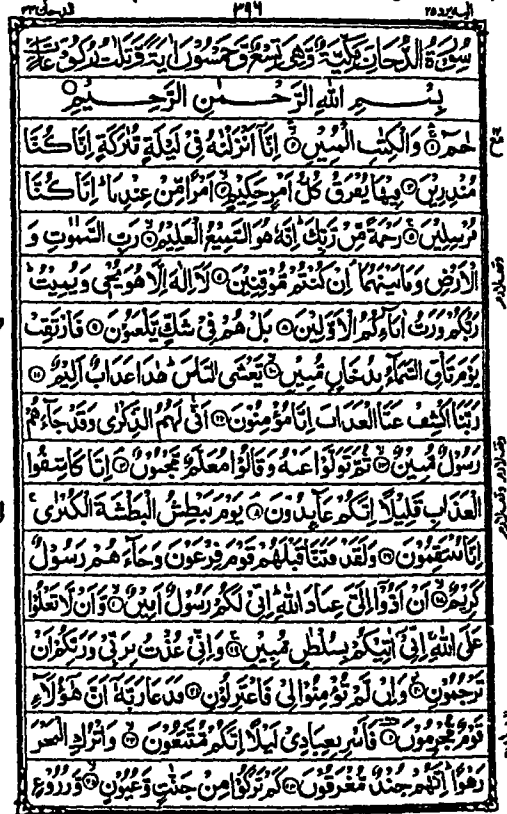 الیہ یرد ۲۵ ۳۹۶ الدخان ۴۴
سُوْرَةُ الدُّخَانِ مَكِّيَّةٌ وَّهِيَ تِسْعٌ وَّخَمْسُوْنَ اٰيَةً وَّثَلٰثُ رُكُوْعَاتٍ
بِسْمِ اللّٰهِ الرَّحْمٰنِ الرَّحِيْمِ
حٰمٓ ۚ وَالْكِتٰبِ الْمُبِيْنِ ۙ اِنَّاۤ اَنْزَلْنٰهُ فِيْ لَيْلَةٍ مُّبٰرَكَةٍ اِنَّا كُنَّا
مُنْذِرِيْنَ ۝ فِيْهَا يُفْرَقُ كُلُّ اَمْرٍ حَكِيْمٍ ۙ اَمْرًا مِّنْ عِنْدِنَا ؕ اِنَّا كُنَّا
مُرْسِلِيْنَ ۚ رَحْمَةً مِّنْ رَّبِّكَ ؕ اِنَّهٗ هُوَ السَّمِيْعُ الْعَلِيْمُ ۙ رَبِّ السَّمٰوٰتِ وَ
الْاَرْضِ وَمَا بَيْنَهُمَا ۘ اِنْ كُنْتُمْ مُّوْقِنِيْنَ ۝ لَاۤ اِلٰهَ اِلَّا هُوَ يُحْيٖ وَيُمِيْتُ ؕ
رَبُّكُمْ وَرَبُّ اٰبَآئِكُمُ الْاَوَّلِيْنَ ۝ بَلْ هُمْ فِيْ شَكٍّ يَّلْعَبُوْنَ ۝ فَارْتَقِبْ
يَوْمَ تَاْتِي السَّمَآءُ بِدُخَانٍ مُّبِيْنٍ ۙ يَّغْشَى النَّاسَ ؕ هٰذَا عَذَابٌ اَلِيْمٌ ۝
رَبَّنَا اكْشِفْ عَنَّا الْعَذَابَ اِنَّا مُؤْمِنُوْنَ ۝ اَنّٰى لَهُمُ الذِّكْرٰى وَقَدْ جَآءَهُمْ
رَسُوْلٌ مُّبِيْنٌ ۙ ثُمَّ تَوَلَّوْا عَنْهُ وَقَالُوْا مُعَلَّمٌ مَّجْنُوْنٌ ۘ اِنَّا كَاشِفُوا
الْعَذَابِ قَلِيْلًا اِنَّكُمْ عَآئِدُوْنَ ۘ يَوْمَ نَبْطِشُ الْبَطْشَةَ الْكُبْرٰى ۚ
اِنَّا مُنْتَقِمُوْنَ ۝ وَلَقَدْ فَتَنَّا قَبْلَهُمْ قَوْمَ فِرْعَوْنَ وَجَآءَهُمْ رَسُوْلٌ
كَرِيْمٌ ۙ اَنْ اَدُّوْۤا اِلَيَّ عِبَادَ اللّٰهِ ؕ اِنِّيْ لَكُمْ رَسُوْلٌ اَمِيْنٌ ۙ وَّاَنْ لَّا تَعْلُوْا
عَلَى اللّٰهِ ۚ اِنِّيْۤ اٰتِيْكُمْ بِسُلْطٰنٍ مُّبِيْنٍ ۚ وَاِنِّيْ عُذْتُ بِرَبِّيْ وَرَبِّكُمْ اَنْ
تَرْجُمُوْنِ ۡ وَاِنْ لَّمْ تُؤْمِنُوْا لِيْ فَاعْتَزِلُوْنِ ۝ فَدَعَا رَبَّهٗۤ اَنَّ هٰۤؤُلَآءِ
قَوْمٌ مُّجْرِمُوْنَ ۝ فَاَسْرِ بِعِبَادِيْ لَيْلًا اِنَّكُمْ مُّتَّبَعُوْنَ ۙ وَاتْرُكِ الْبَحْرَ
رَهْوًا ؕ اِنَّهُمْ جُنْدٌ مُّغْرَقُوْنَ ۝ كَمْ تَرَكُوْا مِنْ جَنّٰتٍ وَّعُيُوْنٍ ۙ وَّزُرُوْعٍ